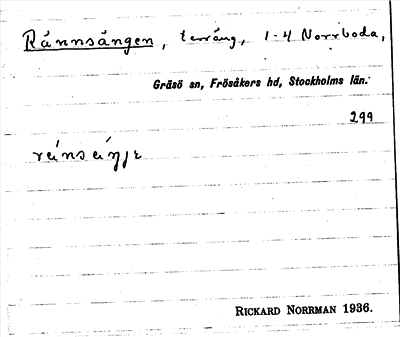 Rännsängen, terräng, 1-4 Norrboda,
Gräsö sn, Frösåkers hd, Stockholms län.
299
RICKARD NORRMAN 1936.